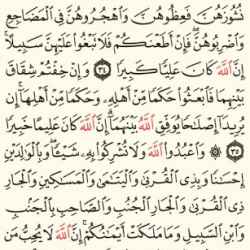 نُشُوزَهُنَّ فَعِظُوهُنَّ وَاهْجُرُوهُنَّ فِي الْمَضَاجِعِ
وَاضْرِبُوهُنَّ فَإِنْ أَطَعْنَكُمْ فَلَا تَبْغُوا عَلَيْهِنَّ سَبِيلًا
إِنَّ اللَّهَ كَانَ عَلِيًّا كَبِيرًا ٣٤ وَإِنْ خِفْتُمْ شِقَاقَ
بَيْنِهِمَا فَابْعَثُوا حَكَمًا مِنْ أَهْلِهِ وَحَكَمًا مِنْ أَهْلِهَا إِنْ
يُرِيدَا إِصْلَاحًا يُوَفِّقِ اللَّهُ بَيْنَهُمَا إِنَّ اللَّهَ كَانَ عَلِيمًا خَبِيرًا
٣٥ وَاعْبُدُوا اللَّهَ وَلَا تُشْرِكُوا بِهِ شَيْئًا وَبِالْوَالِدَيْنِ
إِحْسَانًا وَبِذِي الْقُرْبَىٰ وَالْيَتَامَىٰ وَالْمَسَاكِينِ وَالْجَارِ
ذِي الْقُرْبَىٰ وَالْجَارِ الْجُنُبِ وَالصَّاحِبِ بِالْجَنْبِ
وَابْنِ السَّبِيلِ وَمَا مَلَكَتْ أَيْمَانُكُمْ إِنَّ اللَّهَ لَا يُحِبُّ مَنْ